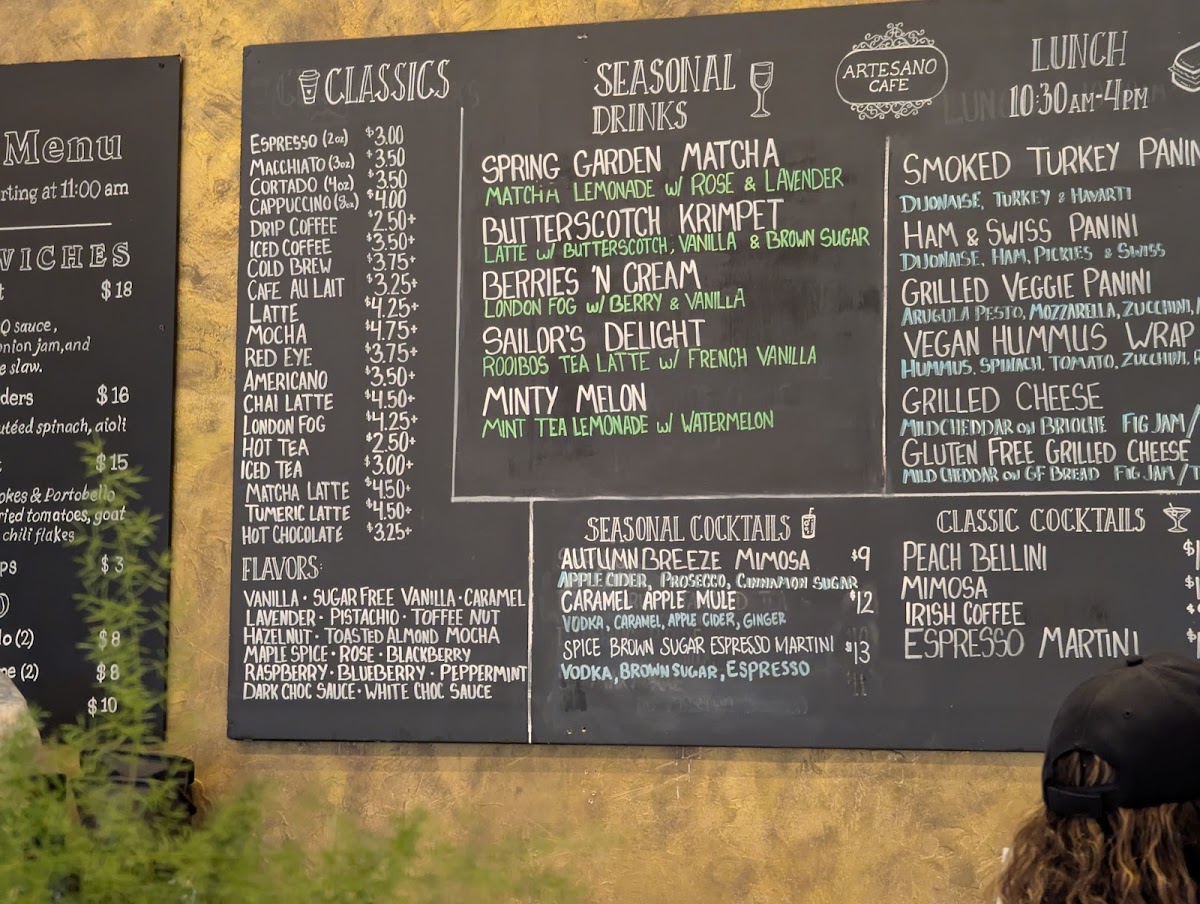 Menu
rting at 11:00 am
WICHES
$18
Q sauce,
onion jam, and
e slaw.
ders $16
utéed spinach, aioli
$15
okes & Portobello
ried tomatoes, goat
chili flakes
ps $3
lo (2) $8
me (2) $8
$10
CLASSICS
ESPRESSO (2oz) $3.00
MACCHIATO (3oz) $3.50
CORTADO (4oz) $3.50
CAPPUCCINO (8oz) $4.00
DRIP COFFEE $2.50+
ICED COFFEE $3.50+
COLD BREW $3.75+
CAFE AU LAIT $3.25+
LATTE $4.25+
MOCHA $4.75+
RED EYE $3.75+
AMERICANO $3.50+
CHAI LATTE $4.50+
LONDON FOG $4.25+
HOT TEA $2.50+
ICED TEA $3.00+
MATCHA LATTE $4.50+
TUMERIC LATTE $4.50+
HOT CHOCOLATE $3.25+
FLAVORS:
VANILLA · SUGAR FREE VANILLA · CARAMEL
LAVENDER · PISTACHIO · TOFFEE NUT
HAZELNUT · TOASTED ALMOND MOCHA
MAPLE SPICE · ROSE · BLACKBERRY
RASPBERRY · BLUEBERRY · PEPPERMINT
DARK CHOC SAUCE · WHITE CHOC SAUCE
SEASONAL
DRINKS
SPRING GARDEN MATCHA
MATCHA LEMONADE w/ ROSE & LAVENDER
BUTTERSCOTCH KRIMPET
LATTE w/ BUTTERSCOTCH, VANILLA & BROWN SUGAR
BERRIES 'N CREAM
LONDON FOG w/ BERRY & VANILLA
SAILOR'S DELIGHT
ROOIBOS TEA LATTE w/ FRENCH VANILLA
MINTY MELON
MINT TEA LEMONADE w/ WATERMELON
ARTESANO
CAFE
LUNCH
10:30AM-4PM
SMOKED TURKEY PANIN
DIJONAISE, TURKEY & HAVARTI
HAM & SWISS PANINI
DIJONAISE, HAM, PICKLES & SWISS
GRILLED VEGGIE PANINI
ARUGULA PESTO, MOZZARELLA, ZUCCHINI,
VEGAN HUMMUS WRAP
HUMMUS, SPINACH, TOMATO, ZUCCHINI, R
GRILLED CHEESE
MILD CHEDDAR ON BRIOCHE FIG JAM/
GLUTEN FREE GRILLED CHEESE
MILD CHEDDAR ON GF BREAD FIG JAM/T
SEASONAL COCKTAILS
AUTUMN BREEZE MIMOSA $9
APPLE CIDER, PROSECCO, CINNAMON SUGAR
CARAMEL APPLE MULE $12
VODKA, CARAMEL, APPLE CIDER, GINGER
SPICE BROWN SUGAR ESPRESSO MARTINI $13
VODKA, BROWN SUGAR, ESPRESSO
CLASSIC COCKTAILS
PEACH BELLINI $1
MIMOSA $
IRISH COFFEE $
ESPRESSO MARTINI $1